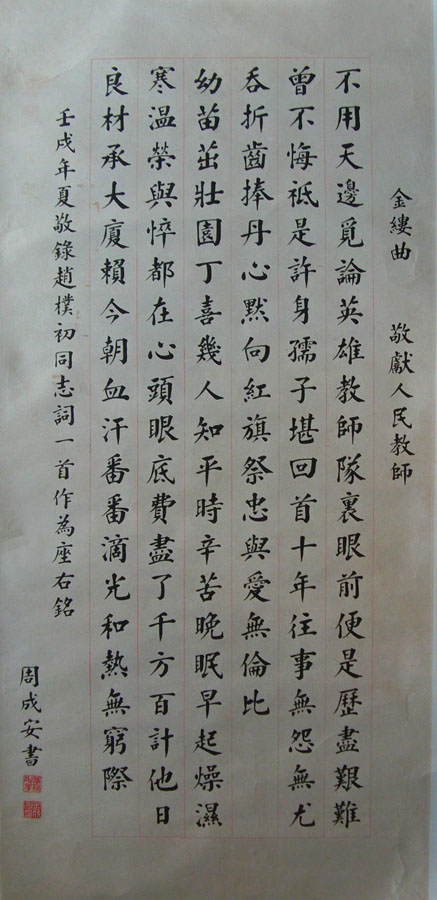 金縷曲 敬獻人民教師
不用天邊覓論英雄教師隊裏眼前便是歷盡艱難
曾不悔祗是許身孺子堪回首十年往事無怨無尤
吞折齒捧丹心默向紅旗祭忠與愛無倫比
幼苗茁壯園丁喜幾人知平時辛苦晚眠早起燥濕
寒溫榮與悴都在心頭眼底費盡了千方百計他日
良材承大廈賴今朝血汗番番滴光和熱無窮際
壬戌年夏敬錄趙樸初同志詞一首作為座右銘
周成安書